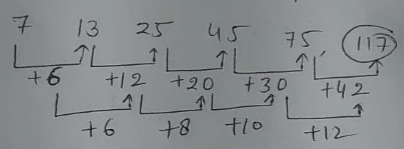 7 13 25 45 75, 117
+6 +12 +20 +30 +42
+6 +8 +10 +12